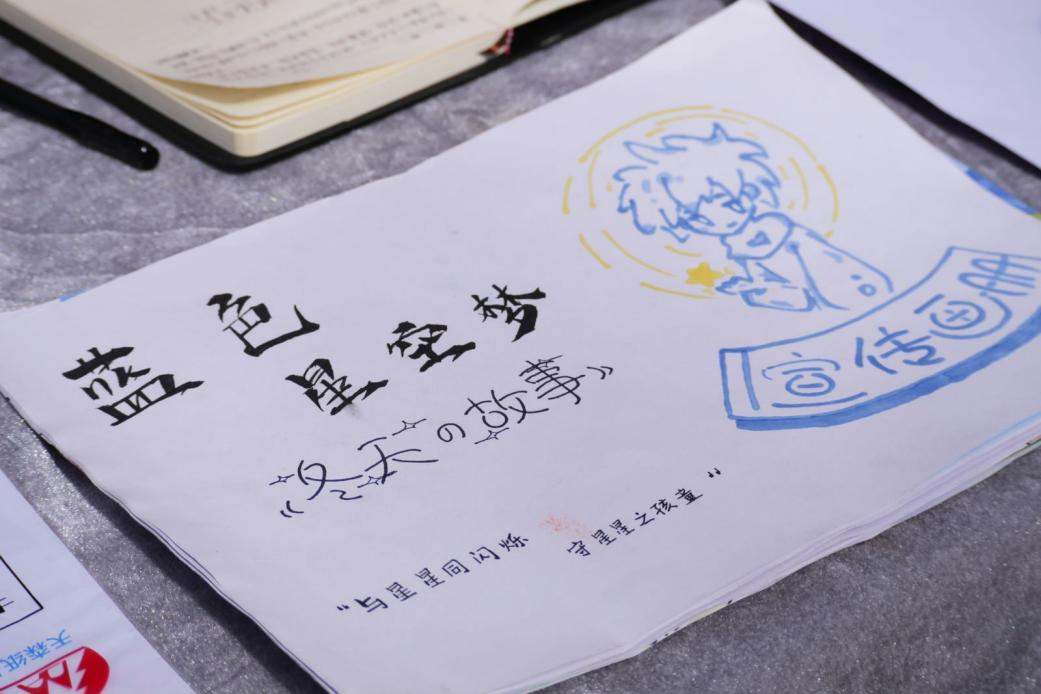 宣传画册
蓝色
星空梦
《 の故事》
“与星星同闪烁
守星星之孩童”
天森纸